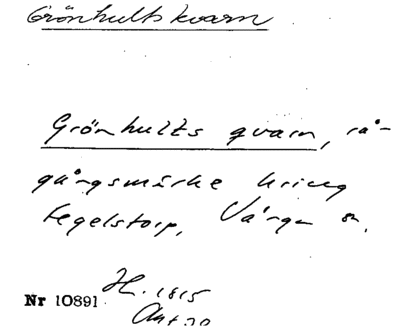 Grönhults kvarn
Grönhults qvarn, rå-
gångsmärke kring
Fegelstorp, Vårgu sn.
Nr 10891 H. 1815
Akt 30